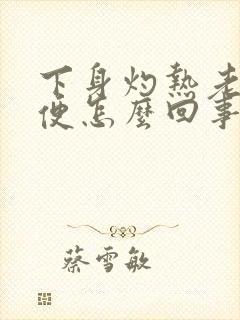 下身灼熱老
便怎麼回事
蔡雪敏